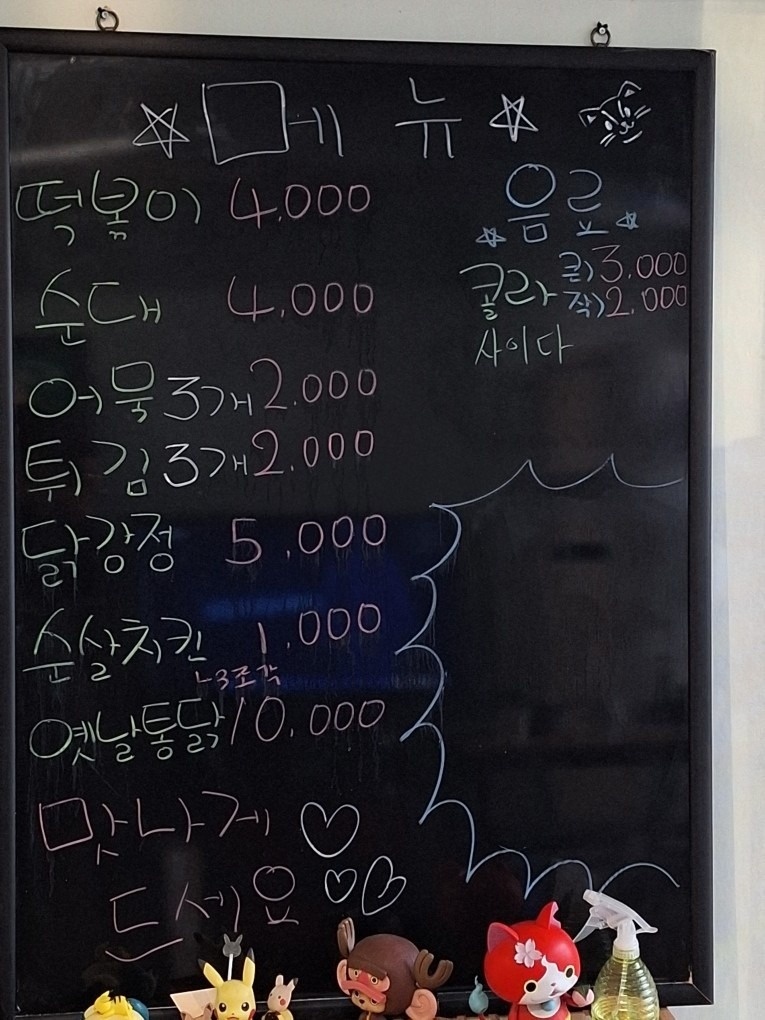 메뉴
떡볶이 4.000
순대 4.000
어묵3개 2.000
튀김3개 2.000
닭강정 5.000
순살치킨 1.000
3조각
옛날통닭 10.000
맛나게
드세요
음료
콜라 큰)3.000
작)2.000
사이다